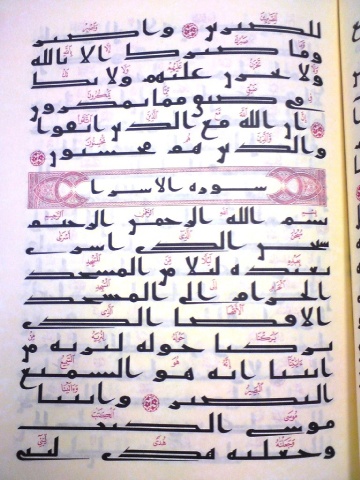 للصبرين ۝ واصبر
وما صبرك الا بالله
ولا تحزن عليهم ولا تك
في ضيق مما يمكرون
۝ ان الله مع الذين اتقوا
والذين هم محسنون ۝
سورة الاسرا
بسم الله الرحمن الرحيم
سبحن الذي اسرى
بعبده ليلا من المسجد
الحرام الى المسجد
الاقصا الذي
بركنا حوله لنريه من
ايتنا انه هو السميع
البصير ۝ واتينا
موسى الكتب
وجعلنه هدى لبني